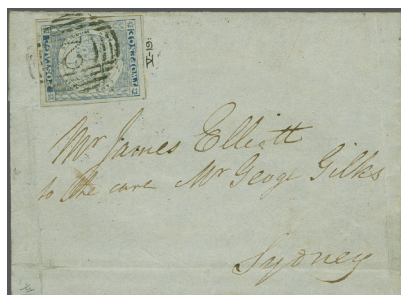 POSTAGE
Mr James Elliott
to the care Mr George Gilks
Sydney